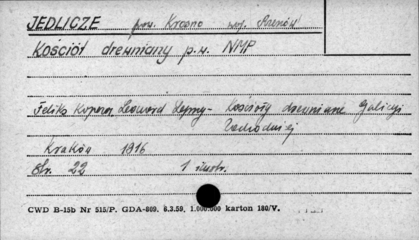 JEDLICZE pow. Krosno woj. Rzeszów
Kościół drewniany p.w. NMP
Feliks Kopera, Leonard Lepszy - Kościoły drewniane Galicji
Zachodniej
Kraków 1916
Str. 22 1 ilustr.
CWD B-15b Nr 515/P. GDA-809. 8.3.59. 1.000.000 karton 180/V.